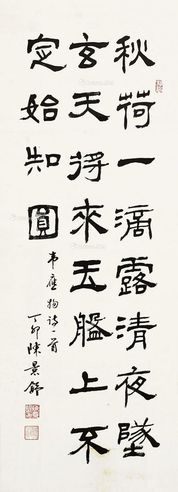 秋荷一滴露清夜墜
玄天得來玉盤上不
定始知圓
韋應物詩一首
丁卯陳景舒